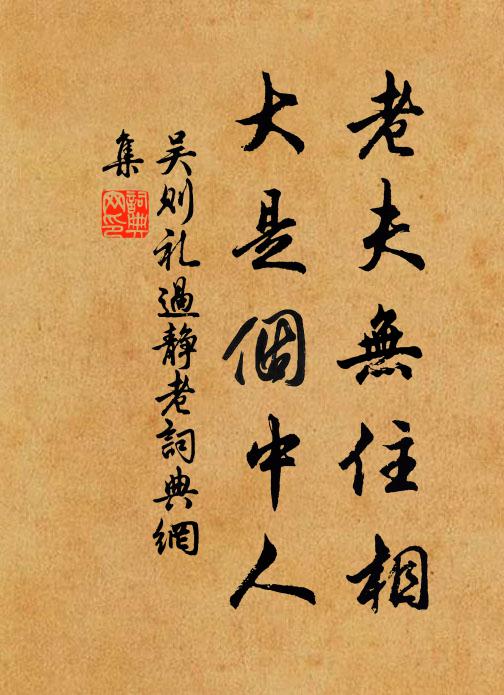 老夫無住相
大是個中人
吴则礼過静老詞典網
集
詞典网印